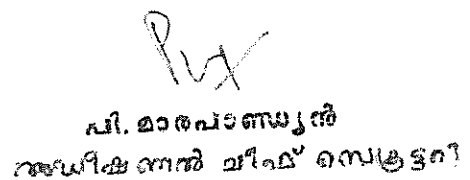 പി. മാരപാണ്ഡ്യൻ
അഡീഷണൽ ചീഫ് സെക്രട്ടറി